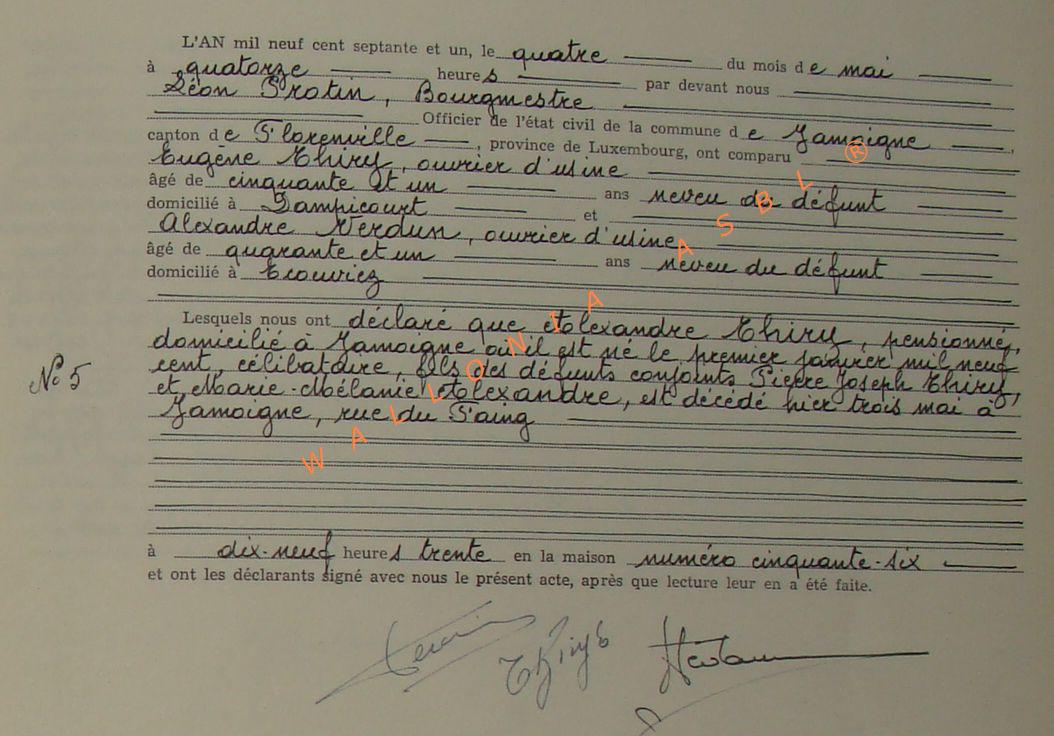 L'AN mil neuf cent septante et un, le quatre du mois de mai
à quatorze heures par devant nous
Léon Protin, Bourgmestre
Officier de l'état civil de la commune de Jamoigne,
canton de Florenville, province de Luxembourg, ont comparu
Eugène Thiry, ouvrier d'usine
âgé de cinquante et un ans neveu du défunt
domicilié à Dampicourt et
Alexandre Verdun, ouvrier d'usine
âgé de quarante et un ans neveu du défunt
domicilié à Ecouviez
Lesquels nous ont déclaré que Alexandre Thiry, pensionné,
domicilié à Jamoigne où il est né le premier janvier mil neuf
N° 5
cent, célibataire, fils des défunts conjoints Pierre Joseph Thiry,
et Marie-Mélanie Alexandre, est décédé hier trois mai à
Jamoigne, rue du Faing
à dix-neuf heures trente en la maison numéro cinquante-six
et ont les déclarants signé avec nous le présent acte, après que lecture leur en a été faite.
Thiry E
WALLONIA ASBL ®